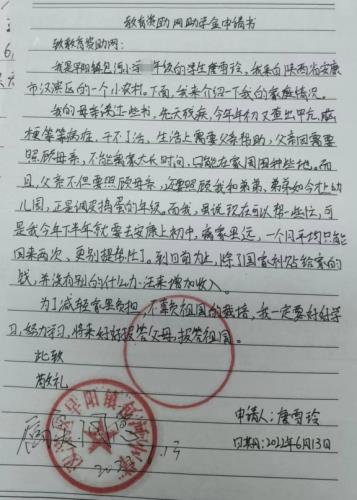 教育资助网助学金申请书
敬教育资助网:
我是早阳镇包河小学 年级的学生唐雪玲,我来自陕西省安康
市汉滨区的一个小农村。下面,我来介绍一下我的家庭情况。
我的母亲洪江些书,先天残疾,今年年初又查出甲亢、脑
梗等等病症,干不了活,生活上需要父亲帮助,父亲因需要
照顾母亲,不能离家太长时间,只能在家周围种些地。而
且,父亲不但要照顾母亲,还要照顾我和弟弟,弟弟如今才上幼
儿园,正是调皮捣蛋的年级。而我,虽说现在可以帮一些忙,可
是我今年下半年就要去安康上初中,离家更远,一个月平均只能
回来两次、更别提帮忙了。到目前为止,除了国家补贴给家的
钱,并没有别的什么办法来增加收入。
为了减轻家里负担,不辜负祖国的栽培,我一定要好好学
习,努力学习,将来好好报答父母,报答祖国。
此致
敬礼
申请人:唐雪玲
日期:2022年6月13日